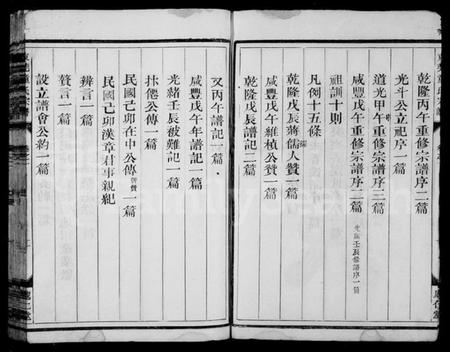 乾隆丙午重修宗譜序二篇
光斗公立祀序一篇
道光甲午重修宗譜序三篇
咸豐戊午重修宗譜序二篇
光緒壬辰修譜序一篇
祖訓十則
凡例十五條
乾隆戊辰蔣孺人贊一篇
咸豐戊午維楨公贊一篇
乾隆戊辰譜記二篇
又丙午譜記一篇
咸豐戊午年譜記一篇
光緒壬辰被難記一篇
公傳一篇
民國己卯在中公傳 一篇
民國己卯漢章君事親紀
辨言一篇
贅言一篇
設立譜會公約一篇